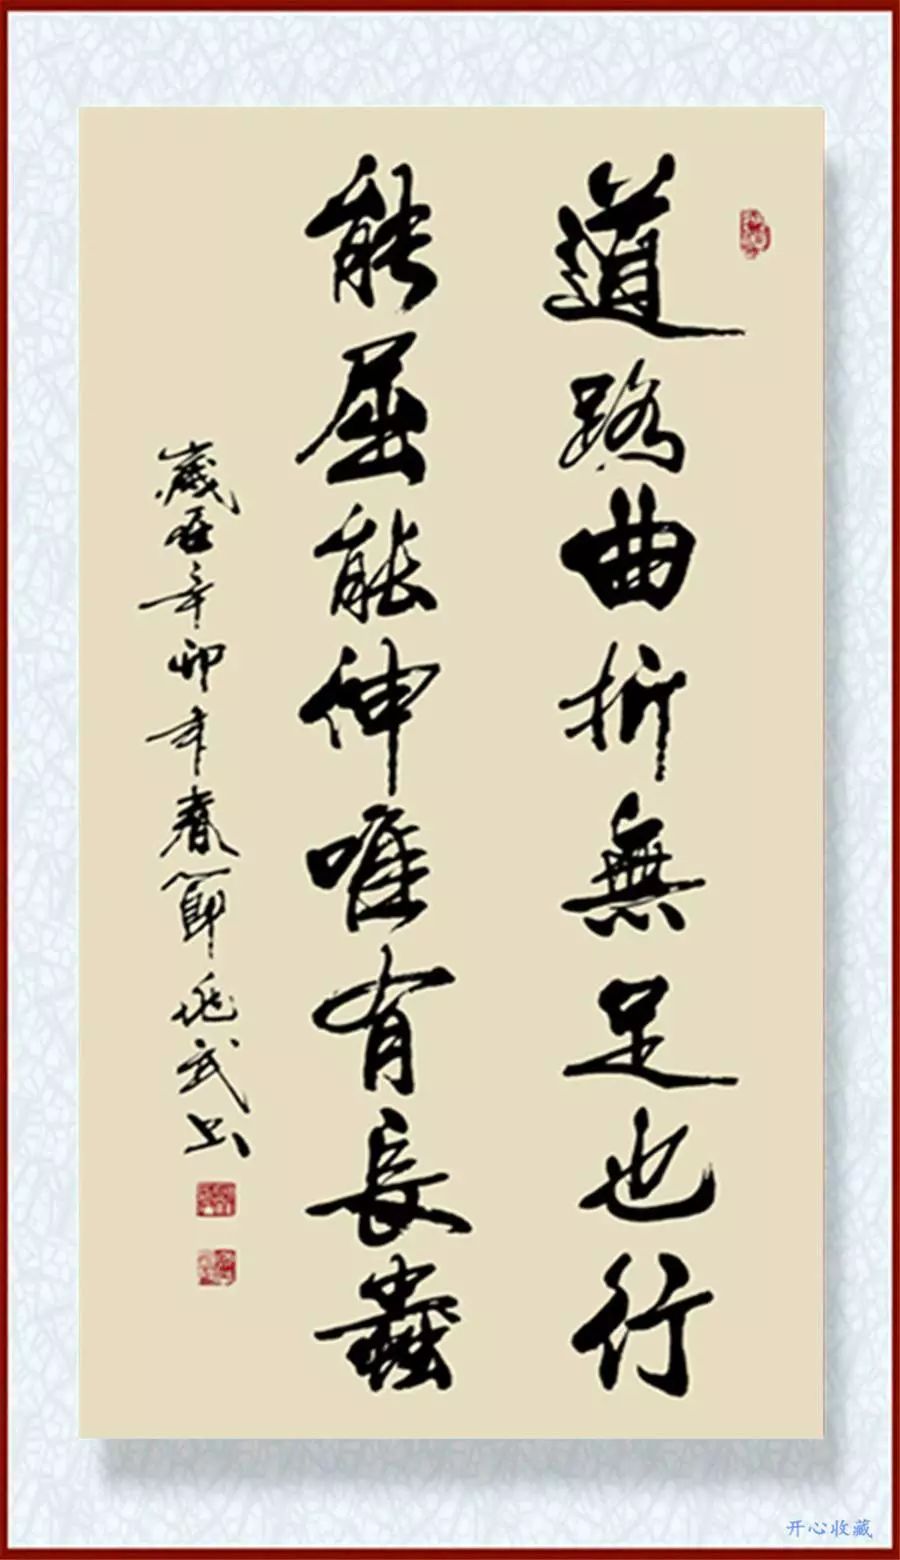 道路曲折無足也行
能屈能伸唯有長蟲
歲在辛卯年春節 武书
开心收藏